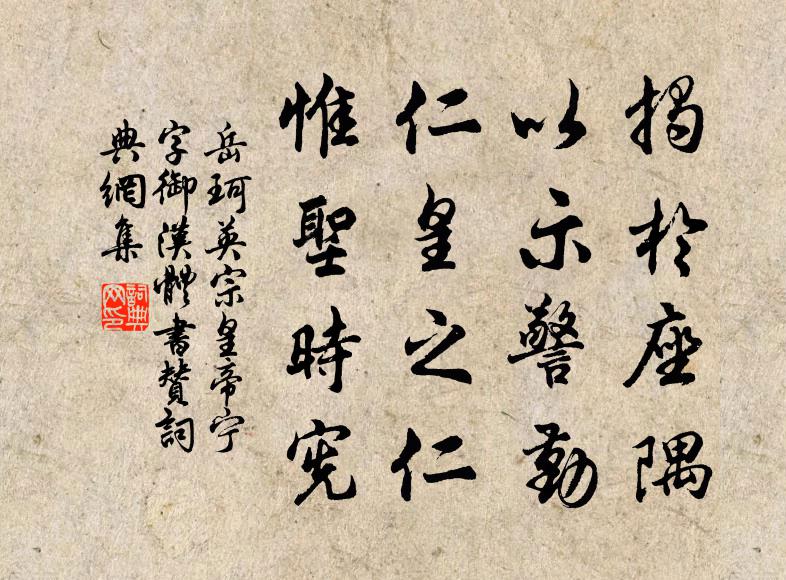 揭於座隅
以示警勤
仁皇之仁
惟聖時宪
岳珂英宗皇帝宁
字御漢體書賛詞
典網集
詞典
网印